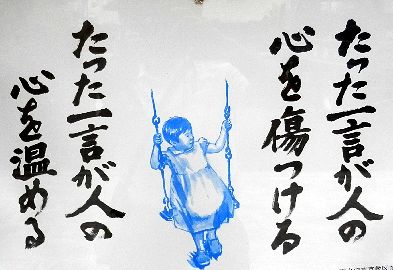 たった一言が人の
心を傷つける
たった一言が人の
心を温める